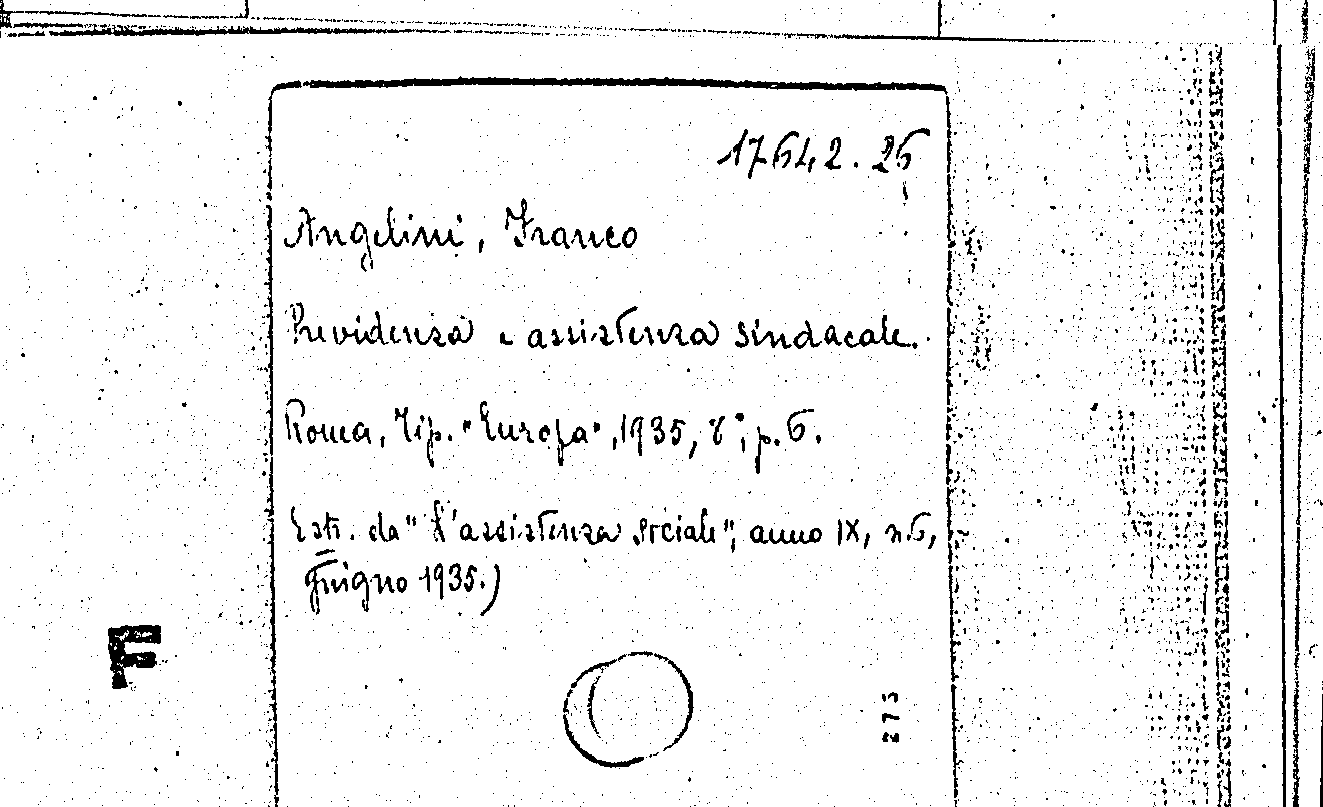 17642.26
Angelini, Franco
Previdenza e assistenza sindacale.
Roma, Tip. "Europa", 1935, 8°, p. 6.
Estr. da "L'assistenza sociale", anno IX, n.6,
giugno 1935.)
F
273